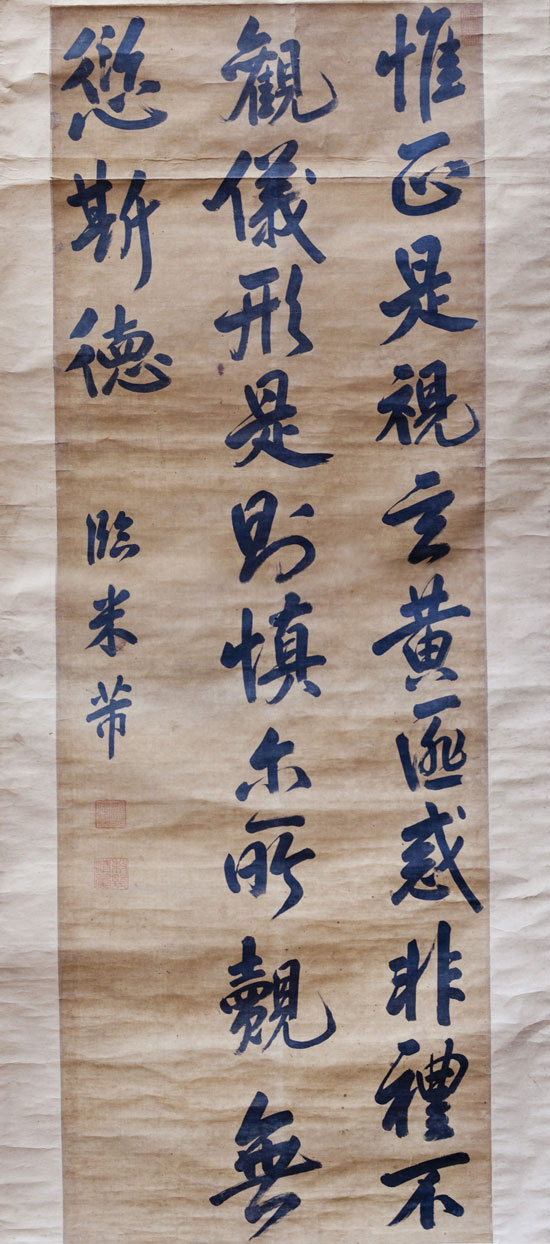 惟正是視玄黃匪惑非禮不
觀儀形是則慎尔所覿無
愆斯德
臨米芾